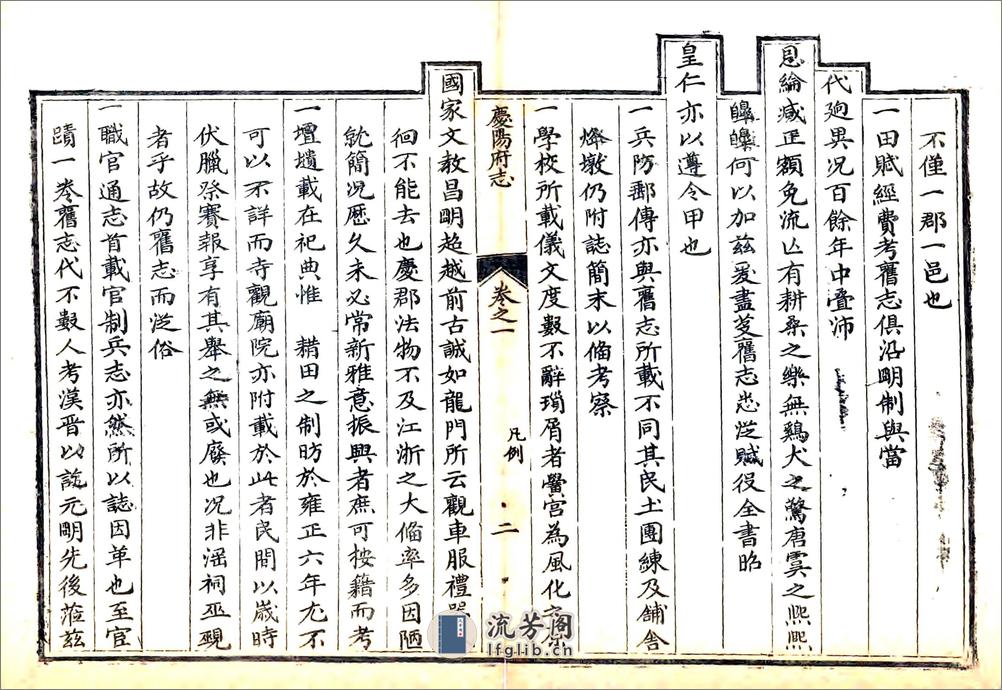 不僅一郡一邑也
一田賦經費考舊志俱沿明制與當
代廻異况百餘年中疊沛
恩綸减正額免流亡有耕桑之樂無鷄犬之驚唐虞之熈熈
皥皥何以加兹爰盡芟舊志悉從賦役全書昭
皇仁亦以遵令甲也
一兵防郵傳亦與舊志所載不同其民土團練及舖舍
燐墩仍附誌簡末以俻考察
一學校所載儀文度數不辭瑣屑者黌宫為風化之
慶陽府志
卷之一
凡例
二
國家文教昌明超越前古誠如龍門所云觀車服禮器
徊不能去也慶郡法物不及江浙之大俻率多因陋
就簡况歷久未必常新雅意振興者庶可按籍而考
一壇壝載在祀典惟 耤田之制昉於雍正六年尤不
可以不詳而寺觀廟院亦附載於此者民間以歲時
伏臘祭賽報享有其舉之無或廢也况非淫祠巫覡
者乎故仍舊志而從俗
一職官通志首載官制兵志亦然所以誌因革也至官
蹟一卷舊志代不數人考漢晋以訖元明先後蒞兹
流芳阁
lfglib.cn